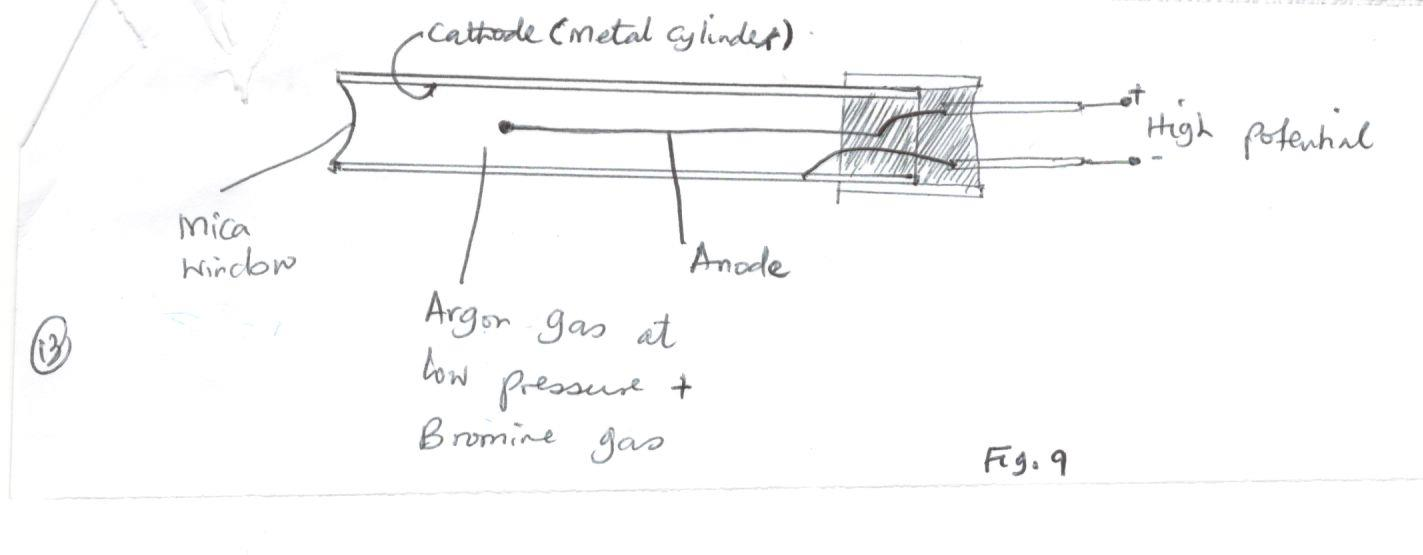 Cathode (metal cylinder)
+
High potential
-
Mica
window
Anode
Argon gas at
low pressure +
Bromine gas
13
Fig. 9